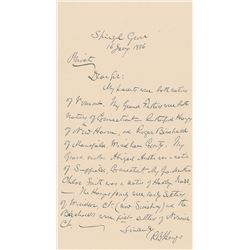 Spiegel Grove
16 Jany 1886
Private
Dear Sir:
My parents were both natives
of Vermont. My Grand Fathers were both
natives of Connecticut. Rutherford Hayes
of New Haven, and Roger Birchard
of Mansfield, Windham County. My
Grand mother Abigail Smith was a native
of Suffield, Connecticut. My Grandmother
Chloe Smith was a native of Hadley, Mass
The Hayes family were early settlers
of Windsor, Ct. (now Simsbury) and the
Birchards were first settlers of Norwich
Ct.
Sincerely
R B Hayes